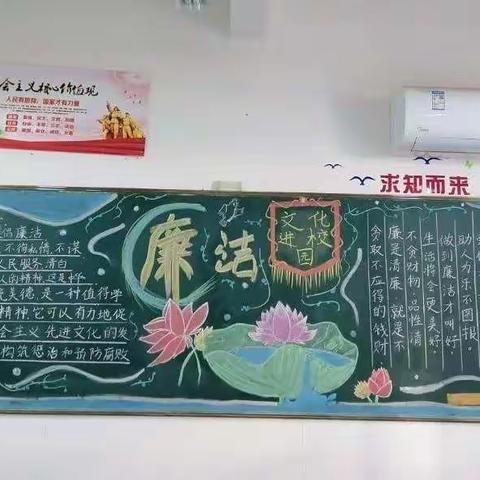 会主义核心价值观
人民有信仰，国家才有力量
求知而来
倡廉洁
不徇私情，不谋
人民服务，清白
人的精神，这是种
美德，是一种值得学
精神它可以有力地促
会主义先进文化的发
构筑惩治和预防腐败
廉洁
文化
进校
园
助人为乐不图报，
做到廉洁才叫好，
生活将会更美好。
不贪财物，品性清
廉是清廉，就是不
贪取不应得的钱财